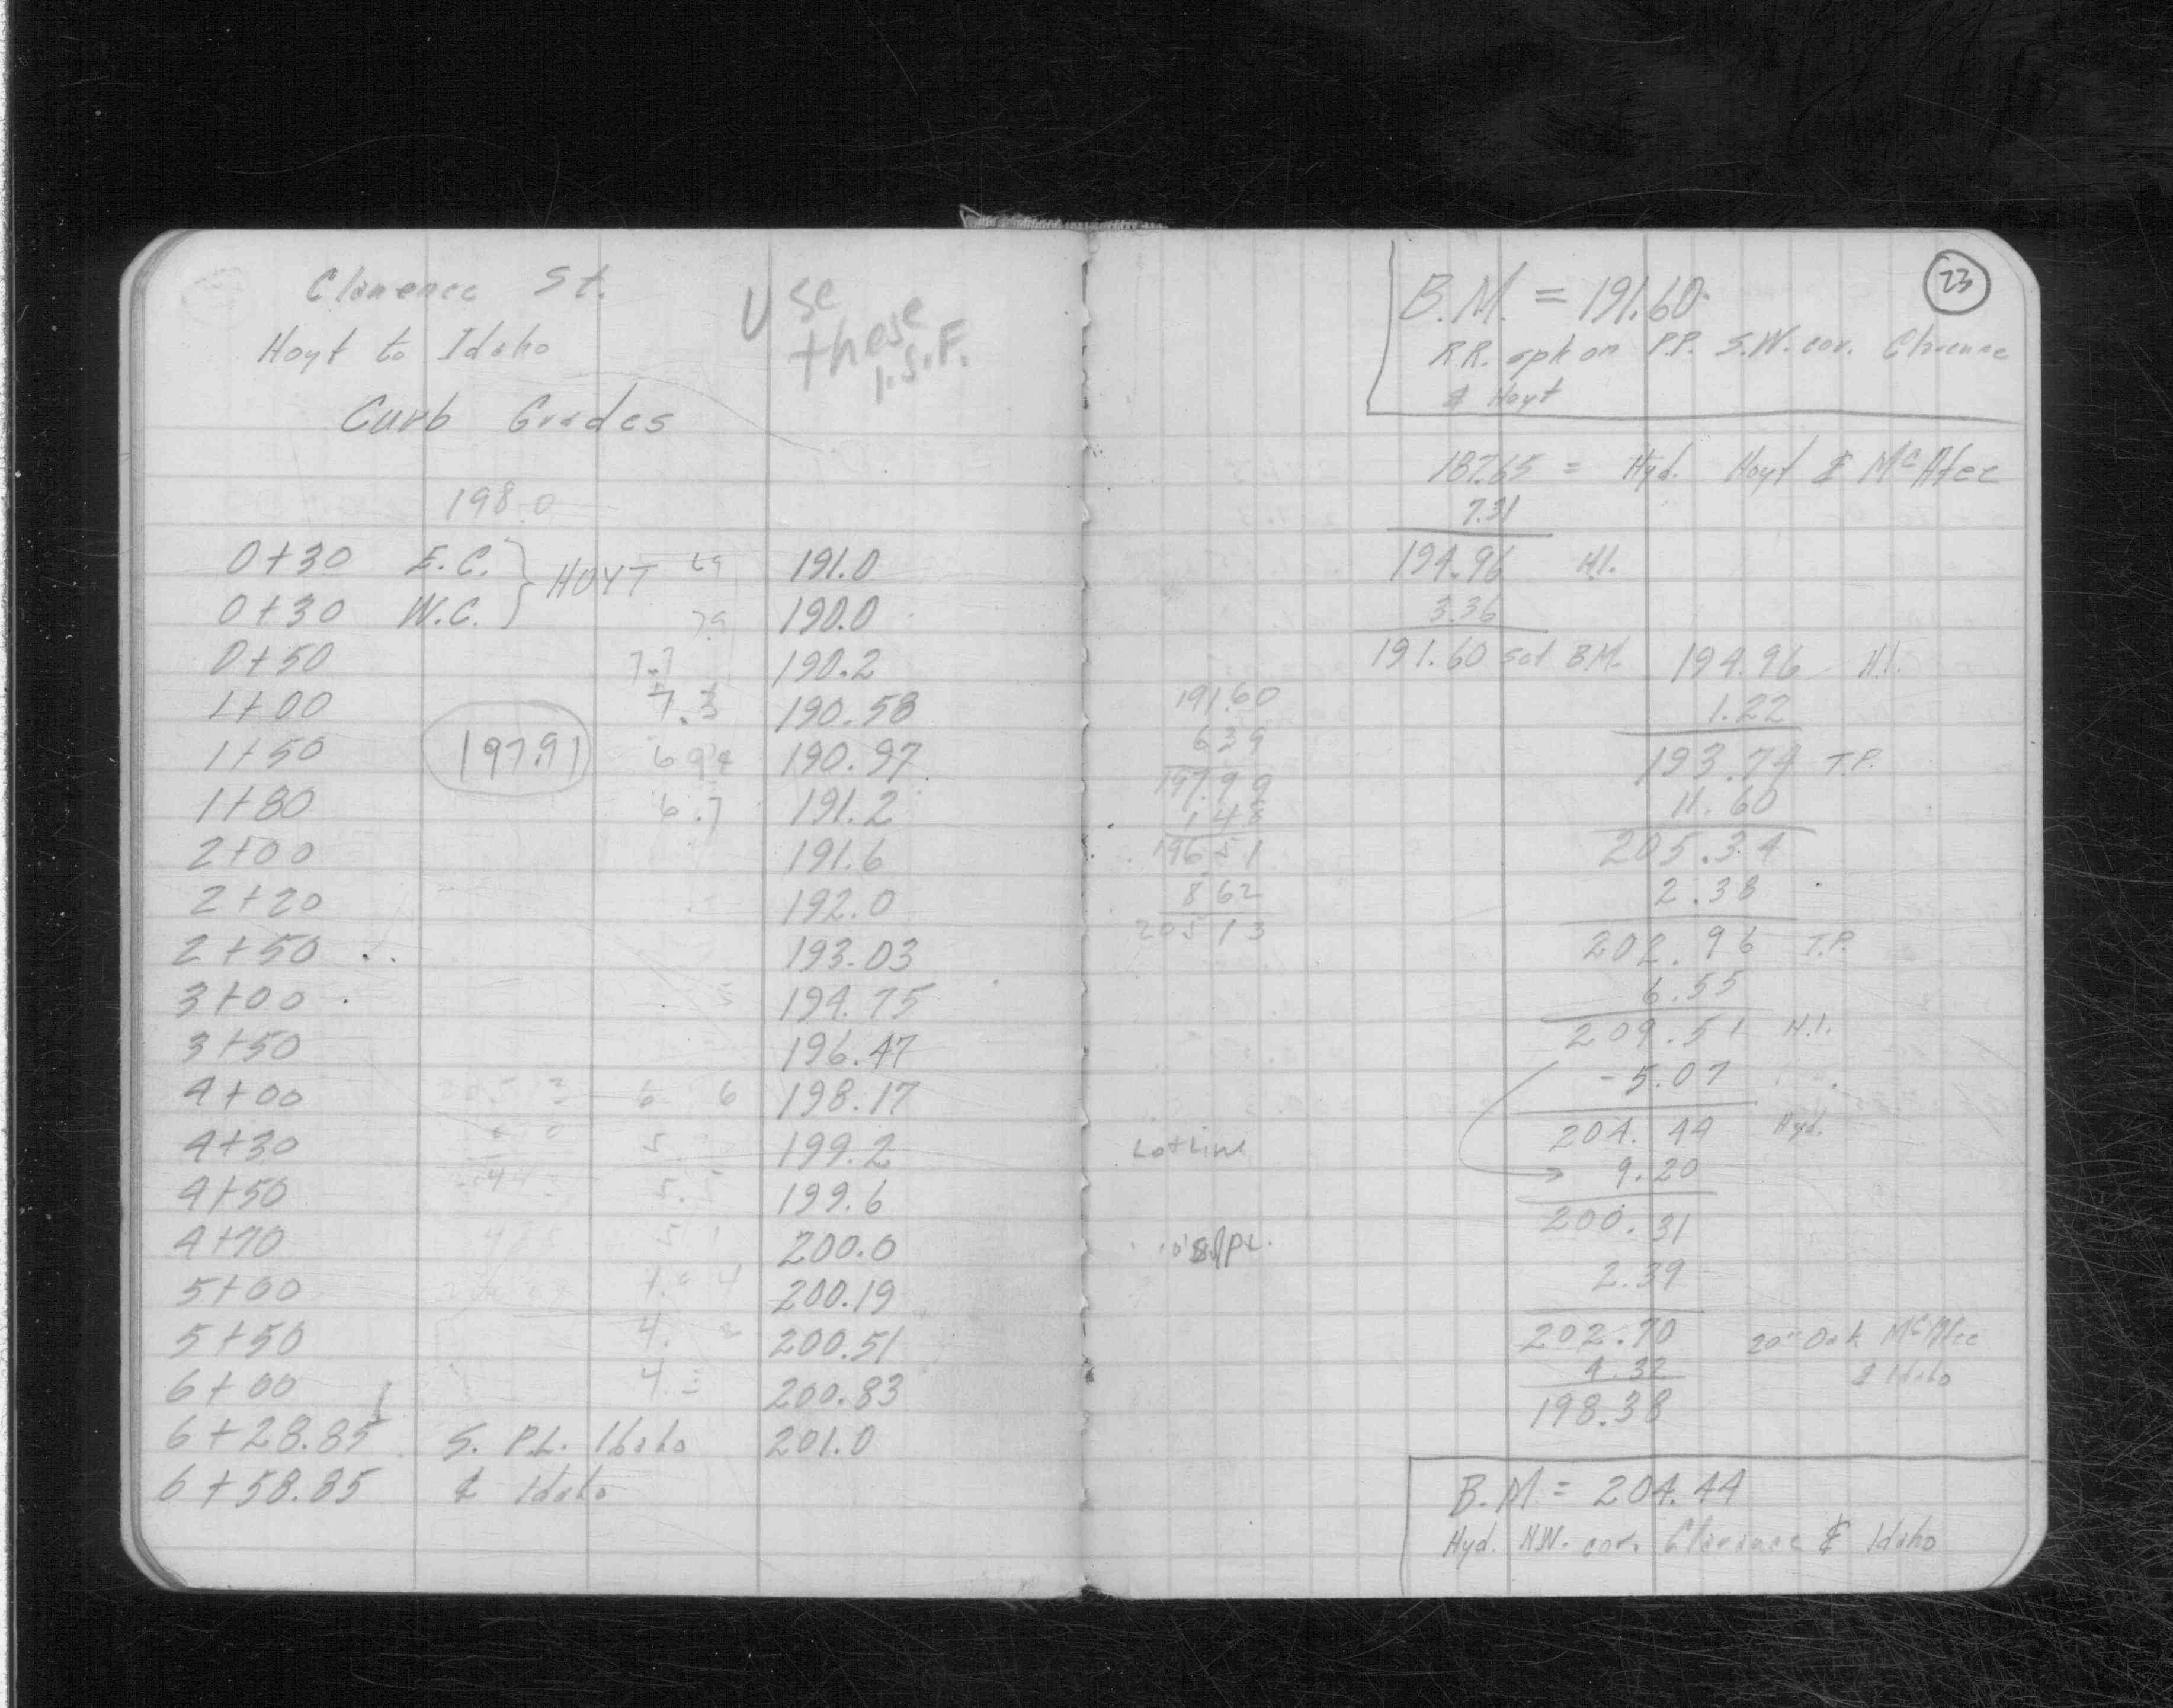 Clarence St.
Hoyt to Idaho
Use these
I.S.F.
Curb Grades
198.0
0+30 E.C. } HOYT 6.9 191.0
0+30 W.C. 7.9 190.0
0+50 7.7 190.2
1+00 7.3 190.58
1+50 197.91 6.94 190.97
1+80 6.7 191.2
2+00 191.6
2+20 192.0
2+50 193.03
3+00 194.75
3+50 196.47
4+00 198.17
4+30 199.2
4+50 5.5 199.6
4+70 5.1 200.0
5+00 200.19
5+50 200.51
6+00 200.83
6+28.85 S. P.L. Idaho 201.0
6+58.85 ℄ Idaho
23
B.M. = 191.60
R.R. spk on P.P. S.W. cor. Clarence
& Hoyt
187.65 = Hyd. Hoyt & McAfee
7.31
194.96 H.I.
3.36
191.60 set B.M. 194.96 H.I.
1.22
193.74 T.P.
11.60
205.34
2.38
202.96 T.P.
6.55
209.51 H.I.
-5.07
204.44 Hyd.
9.20
200.31
2.39
202.70 20" Oak McAfee
& Idaho
4.32
198.38
191.60
6 39
197.99
1 48
196 51
8 62
205 13
Lot Line
B.M = 204.44
Hyd. N.W. cor. Clarence & Idaho